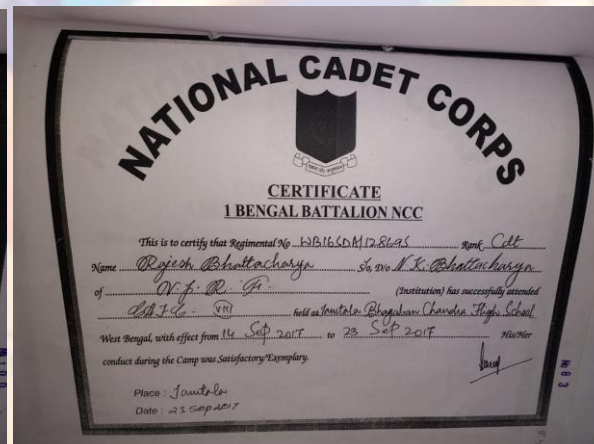 NATIONAL CADET CORPS
CERTIFICATE
1 BENGAL BATTALION NCC
This is to certify that Regimental No WB16SDA128695 Rank Cdt
Name Rajesh Bhattacharya So, D/o N.K. Bhattacharya
of (Institution) has successfully attended
VIII held at Jamtala Bhagaban Chandra High School
West Bengal, with effect from 14 Sep 2017 to 23 Sep 2017 His/Her
conduct during the Camp was Satisfactory/Exemplary.
Place : Jamtala
Date : 23 Sep 2017